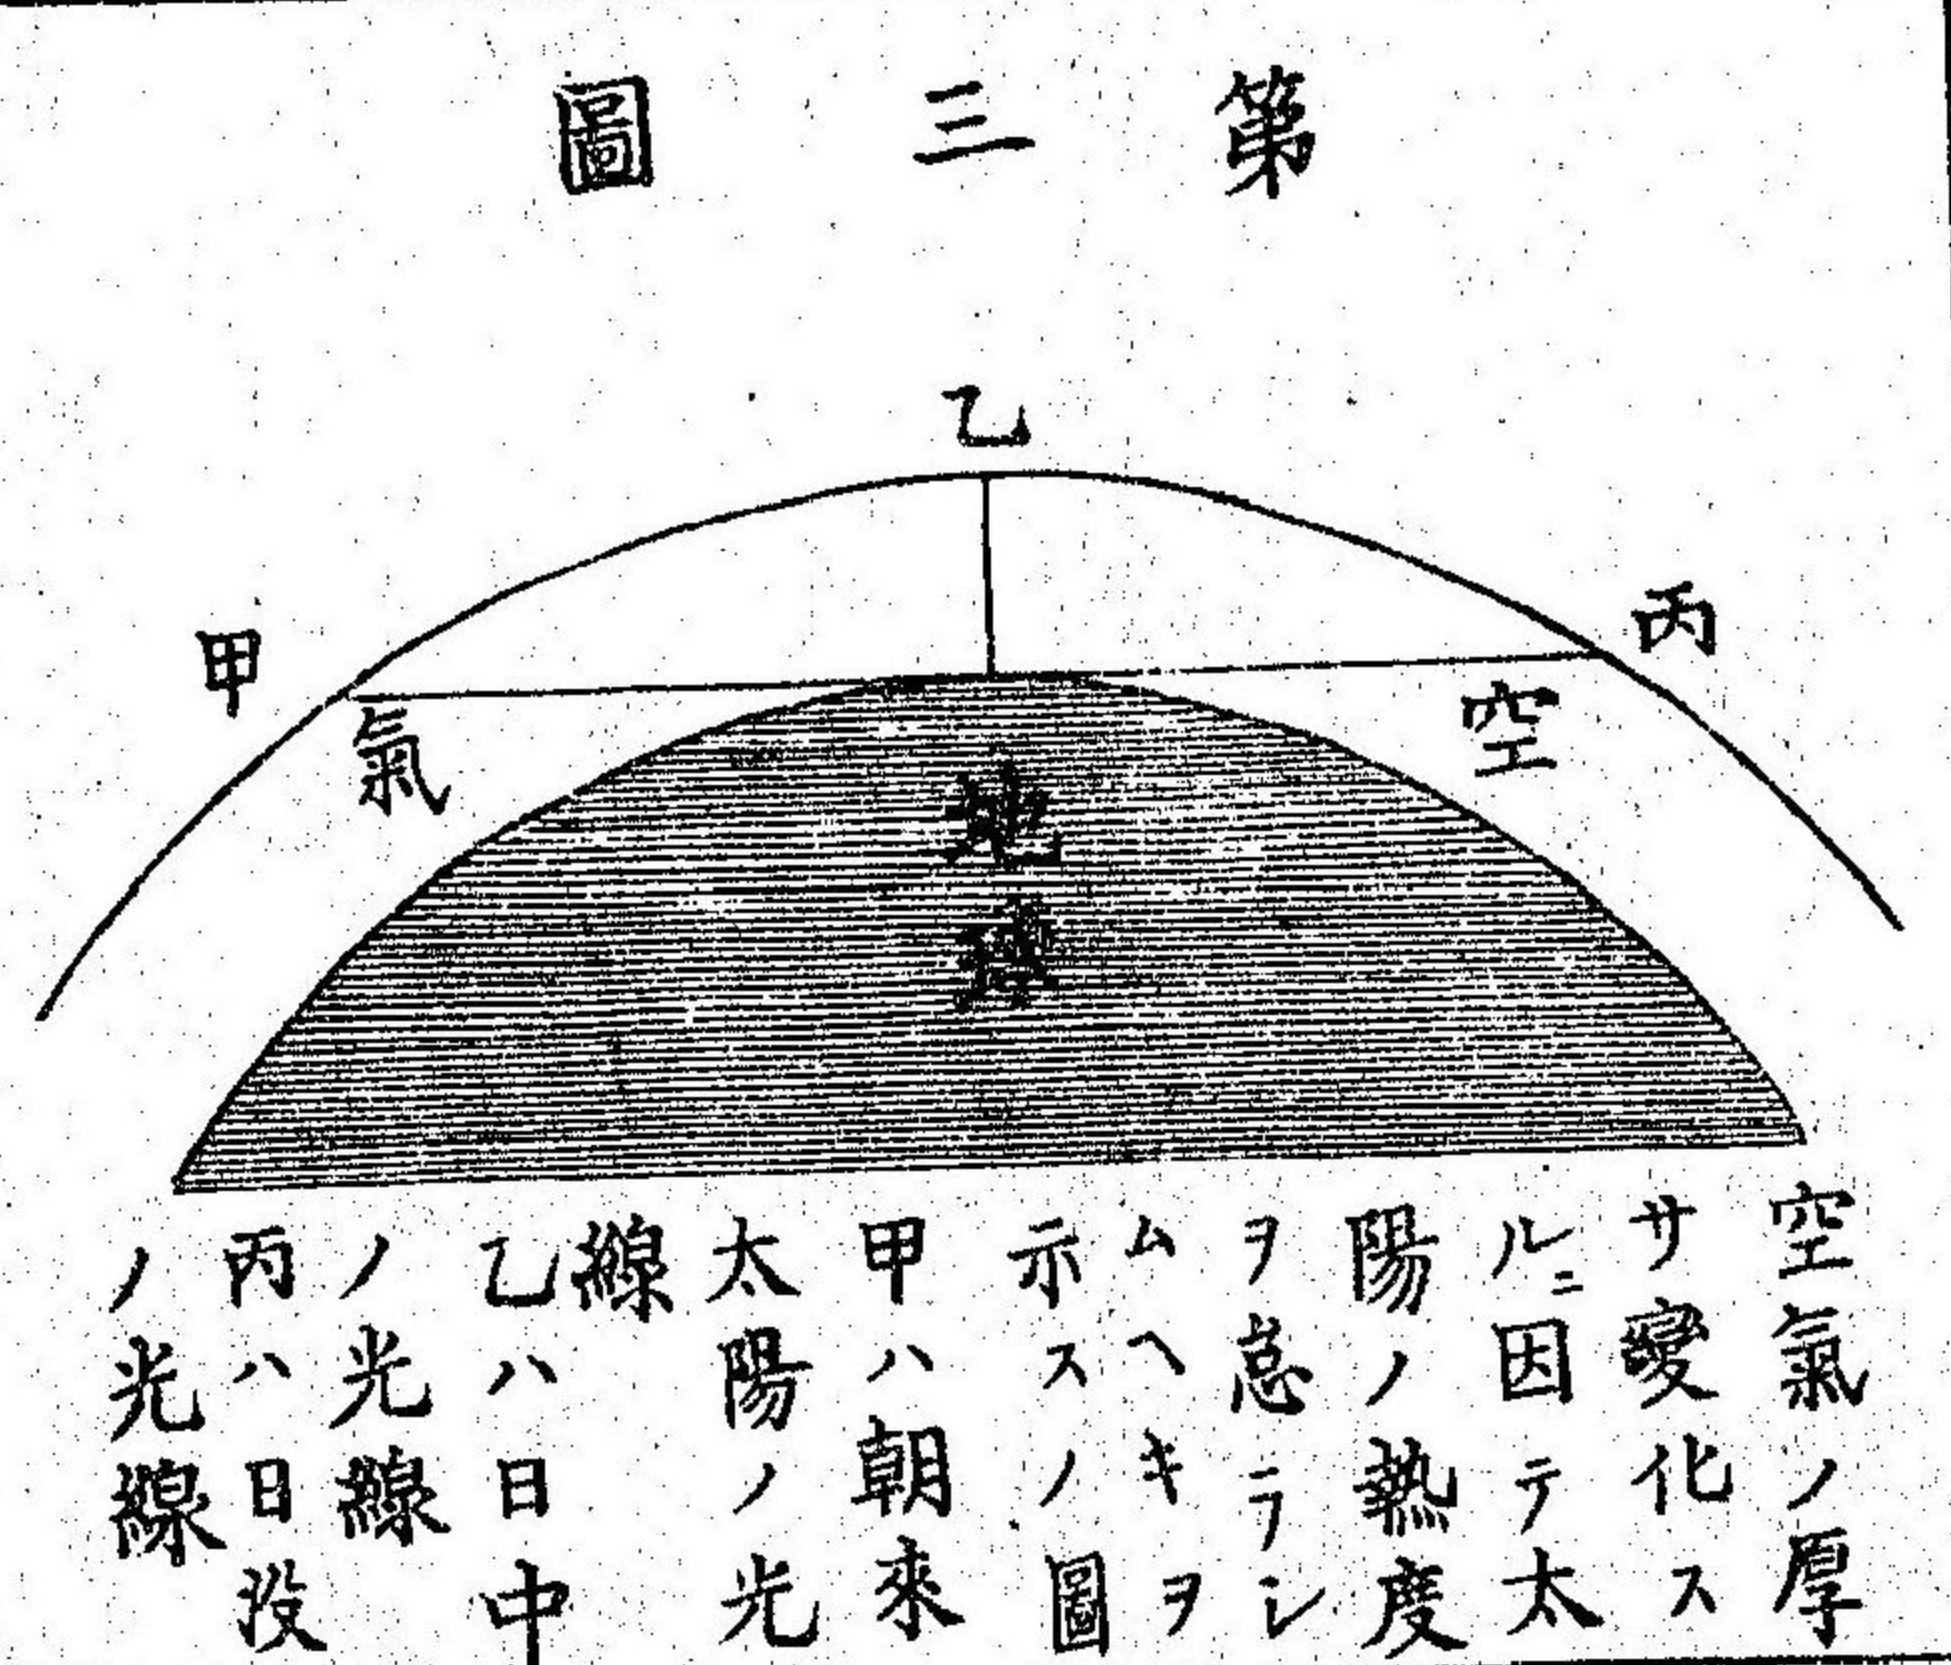 第三圖
乙
丙
甲
空氣
地球
空氣ノ厚
サ變化ス
ルニ因テ太
陽ノ熱度
ヲ怠ラシ
ムヘキヲ
示スノ圖
甲ハ朝來
太陽ノ光
線
乙ハ日中
ノ光線
丙ハ日没
ノ光線